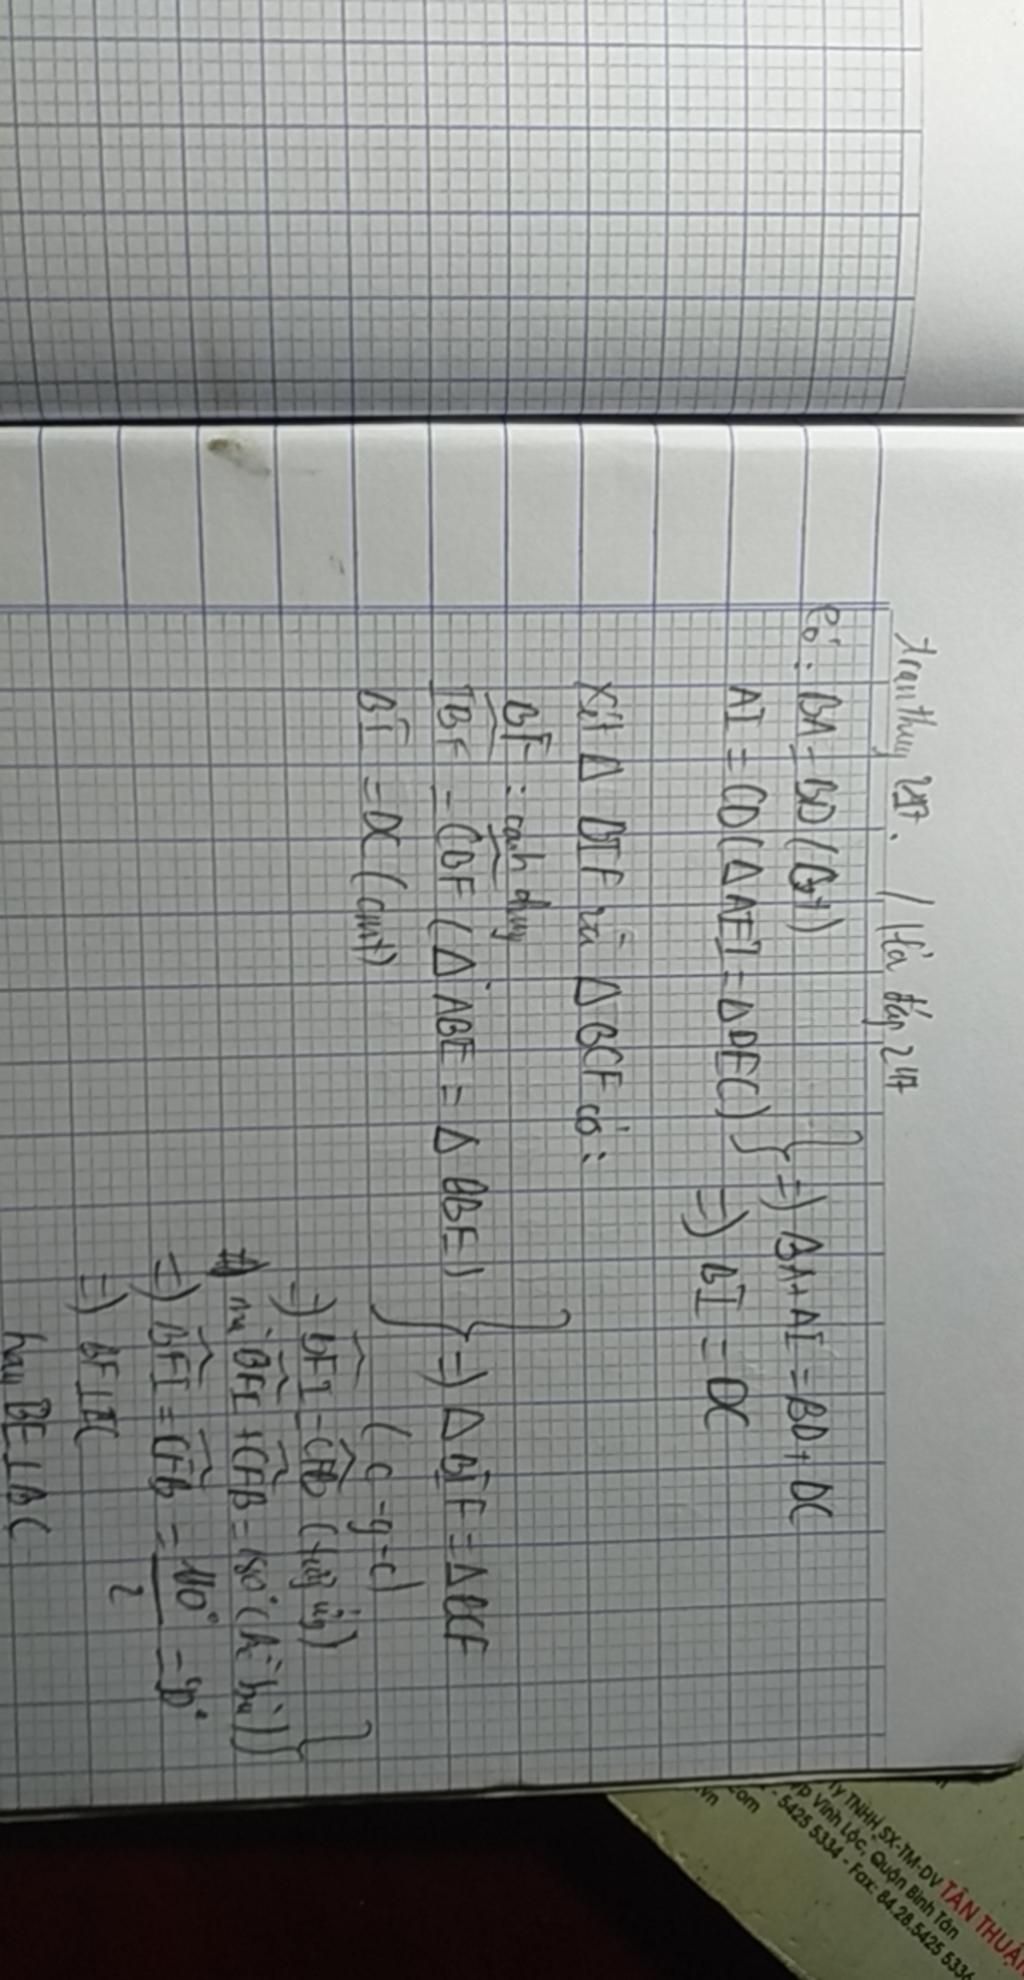 tranthuy 247. / Hỏi đáp 247
Có: BA = BD (GT)
AI = CD (ΔAEI = ΔDEC) } => BA + AI = BD + DC
=> BI = DC
Xét Δ BIF và Δ BCF có:
BF: cạnh chung
IBF = CBF (Δ ABE = Δ BBE)
BI = DC (cmt) } => Δ BIF = Δ BCF
(c-g-c)
=> BFI = CFB (tương ứng)
mà BFI + CFB = 180° (kề bù) }
=> BFI = CFB = 180° / 2 = 90°
=> BF ⊥ IC
hay BE ⊥ BC
ty TNHH SX-TM-DV TÂN THUẬN
Vĩnh Lộc, Quận Bình Tân
5425 5334 - Fax: 84.28.5425 5336
.com
.vn